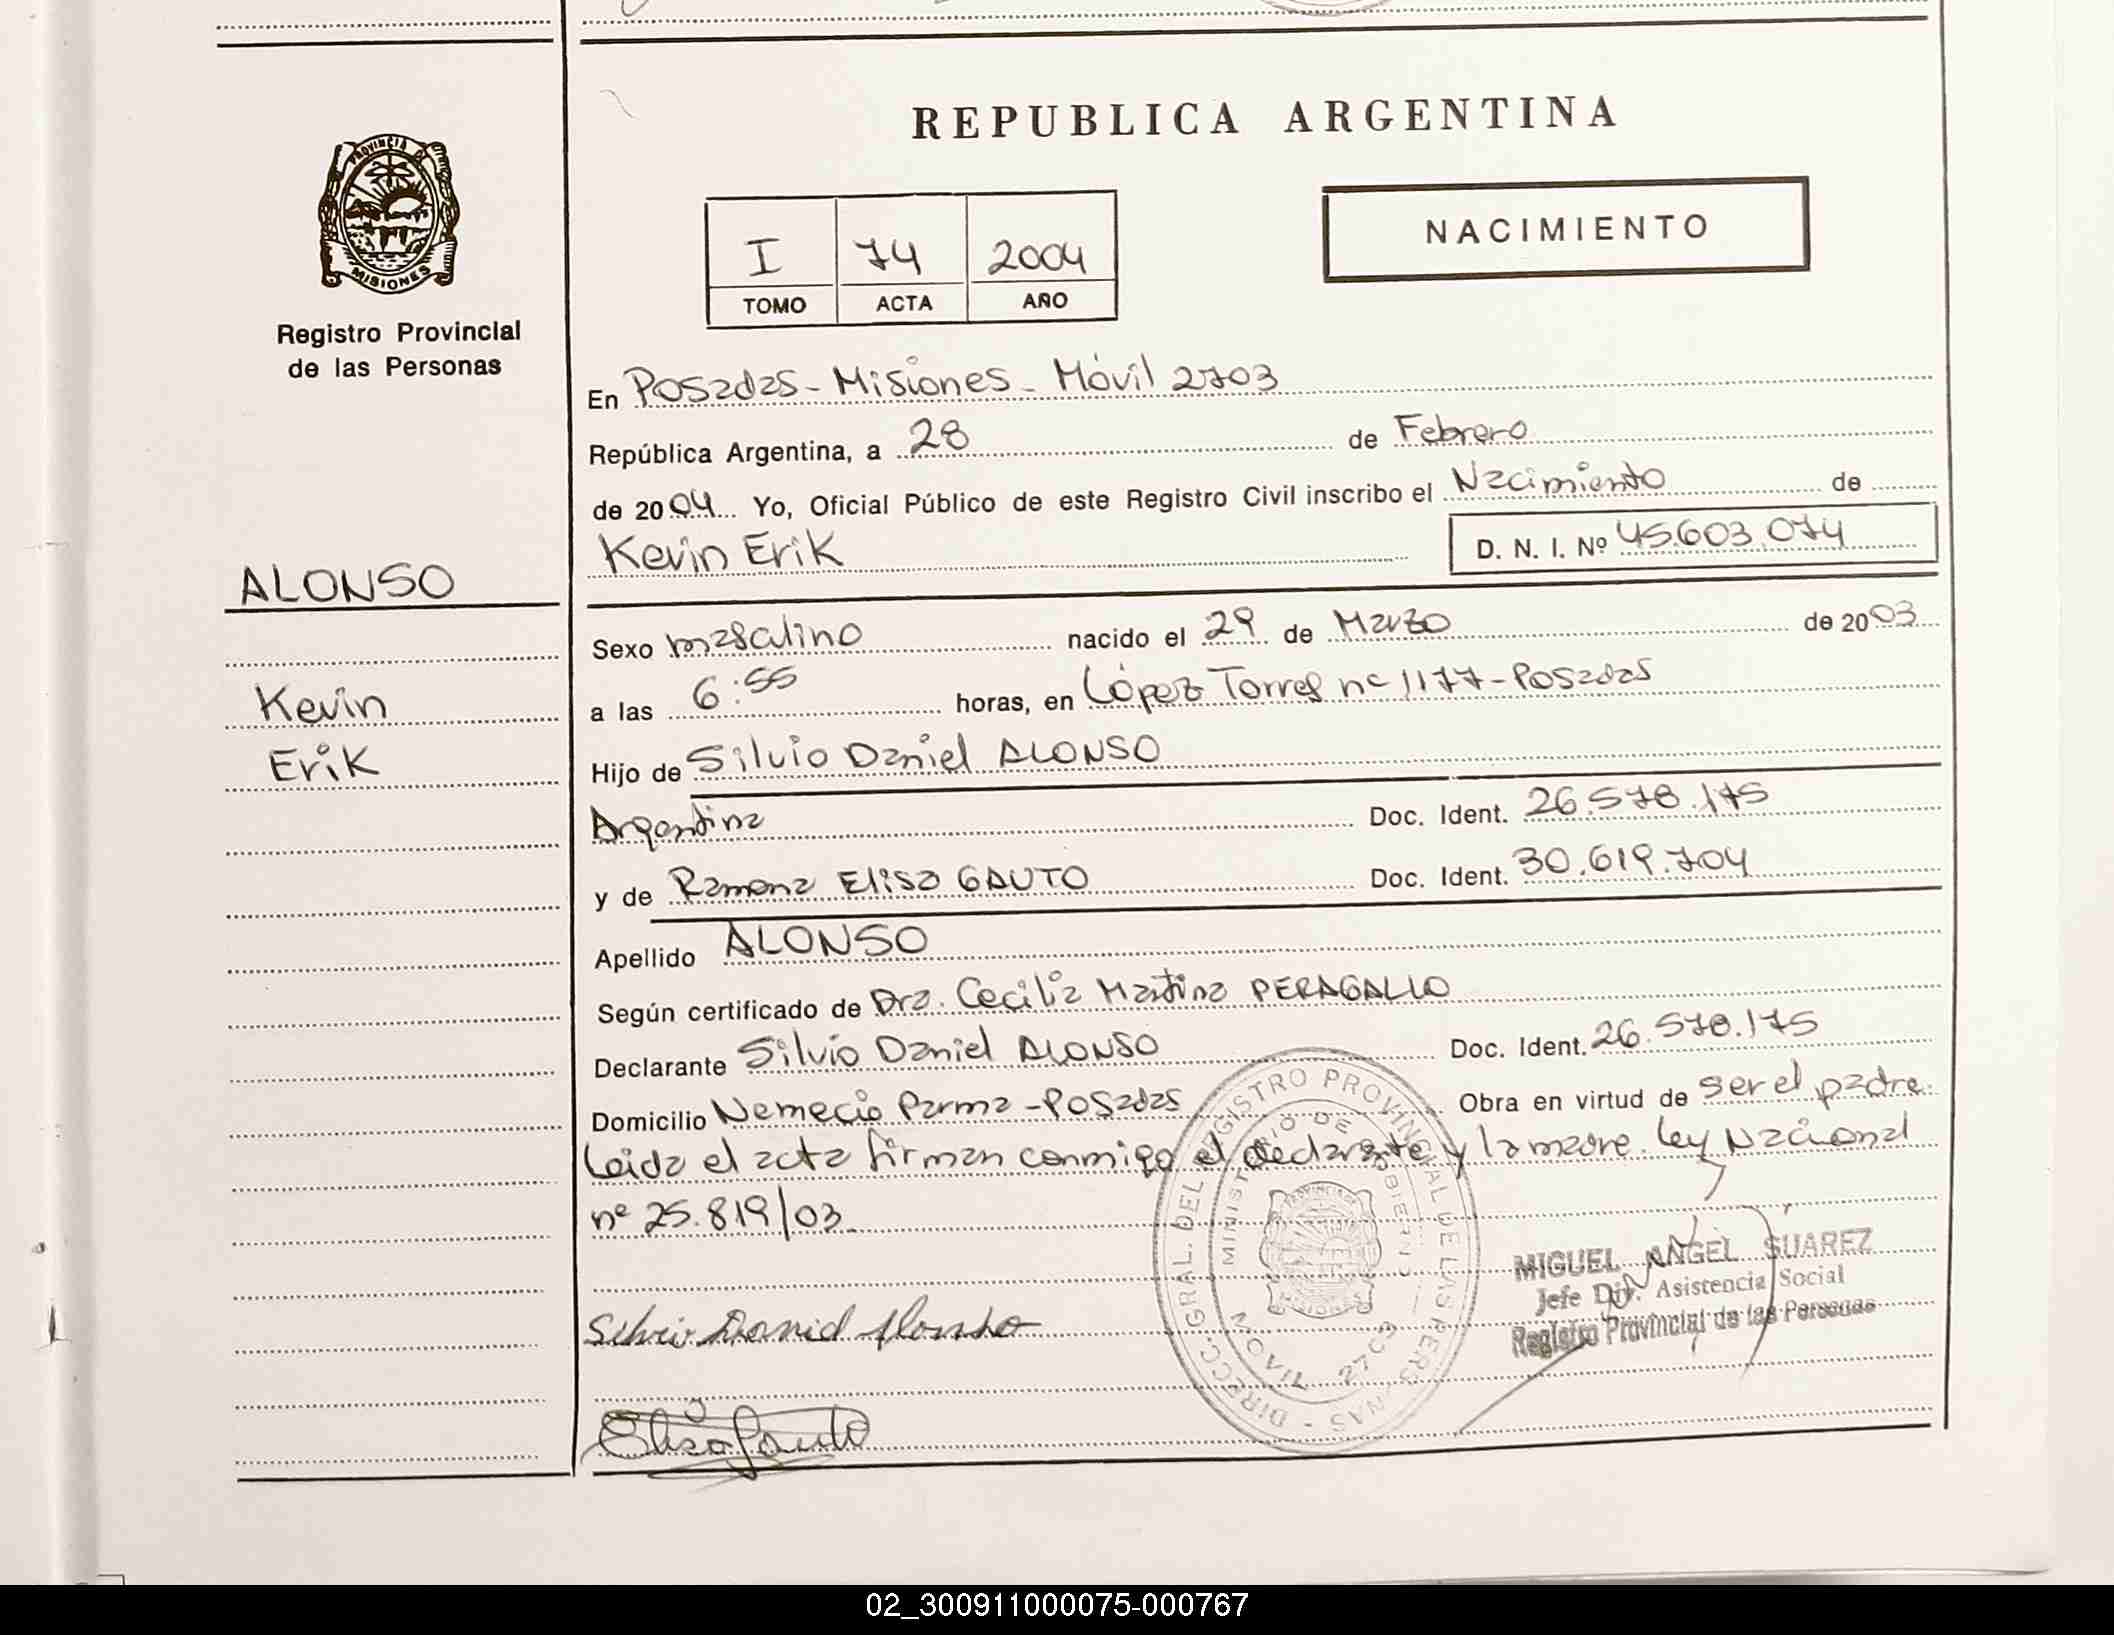 REPUBLICA ARGENTINA
PROVINCIA DE
MISIONES
Registro Provincial
de las Personas
I 74 2004
TOMO ACTA AÑO
NACIMIENTO
En Posadas - Misiones - Móvil 2703
República Argentina, a 28 de Febrero
de 2004 Yo, Oficial Público de este Registro Civil inscribo el Nacimiento de
Kevin Erik D. N. I. Nº 45.603.074
ALONSO
Kevin
Erik
Sexo masculino nacido el 29 de Marzo de 2003
a las 6:55 horas, en López Torres nº 1177 - Posadas
Hijo de Silvio Daniel ALONSO
Argentina Doc. Ident. 26.578.175
y de Ramona Elisa GAUTO Doc. Ident. 30.619.704
Apellido ALONSO
Según certificado de Dra. Cecilia Martina PERAGALLO
Declarante Silvio Daniel ALONSO Doc. Ident. 26.578.175
Domicilio Nemecio Parma - Posadas Obra en virtud de ser el padre.
Leida el acta firman conmigo el declarante y la madre. Ley Nacional
nº 25.819/03.
DIRECC. GRAL. DEL REGISTRO PROVINCIAL DE LAS PERSONAS
MINISTERIO DE GOBIERNO
MOVIL 2703
MIGUEL ANGEL SUAREZ
Jefe Div. Asistencia Social
Registro Provincial de las Personas
Silvio Daniel Alonso
Elisa Gauto
02_300911000075-000767